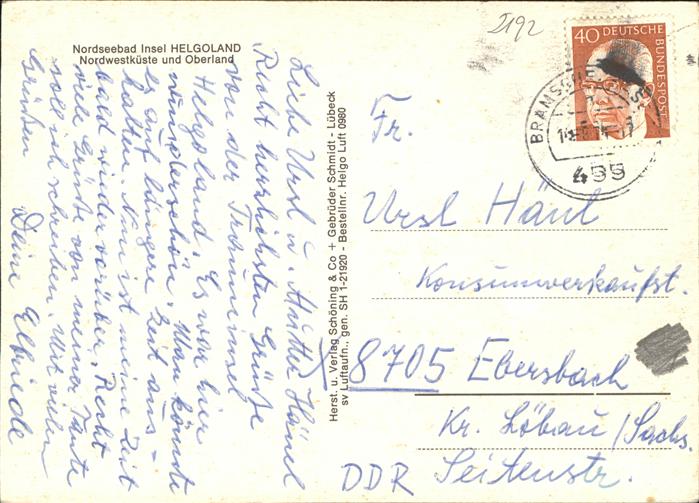 Nordseebad Insel HELGOLAND
Nordwestküste und Oberland
Liebe Ursl u. Mutter Hänel
Recht herzlichsten Grüße
von der Trauminsel
Helgoland. Es war hier
wunderschön. Man könnte
es auf längere Zeit aus-
halten. Nun ist meine Zeit
bald wieder vorüber. Recht
viele Grüße von meiner Tante
soll ich schreiben. Mit vielen
Grüßen
Deine Elfriede
Herst. u. Verlag Schöning & Co + Gebrüder Schmidt - Lübeck
sv Luftaufn., gen. SH 1-21920 - Bestellnr. Helgo Luft 0980
2192
40 DEUTSCHE
BUNDESPOST
455
Fr.
Ursl Hänl
Konsumverkaufst.
8705 Ebersbach
Kr. Löbau/Sachs.
DDR Seitenstr.